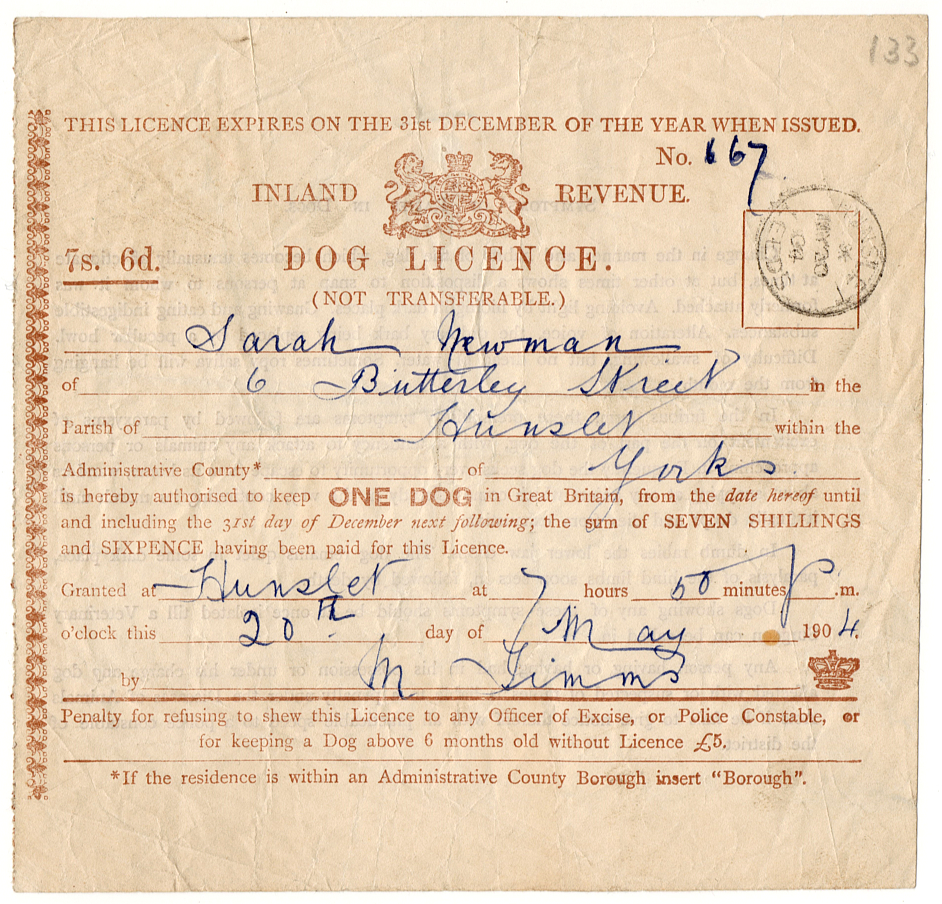 133
THIS LICENCE EXPIRES ON THE 31st DECEMBER OF THE YEAR WHEN ISSUED.
No. 167
INLAND REVENUE.
7s. 6d. DOG LICENCE.
(NOT TRANSFERABLE.)
Sarah Newman
of 6 Butterley Street in the
Parish of Hunslet within the
Administrative County* of Yorks
is hereby authorised to keep ONE DOG in Great Britain, from the date hereof until
and including the 31st day of December next following; the sum of SEVEN SHILLINGS
and SIXPENCE having been paid for this Licence.
Granted at Hunslet at 7 hours 50 minutes p.m.
o'clock this 20th day of May 1904.
by M Timms
Penalty for refusing to shew this Licence to any Officer of Excise, or Police Constable, or
for keeping a Dog above 6 months old without Licence £5.
*If the residence is within an Administrative County Borough insert "Borough".